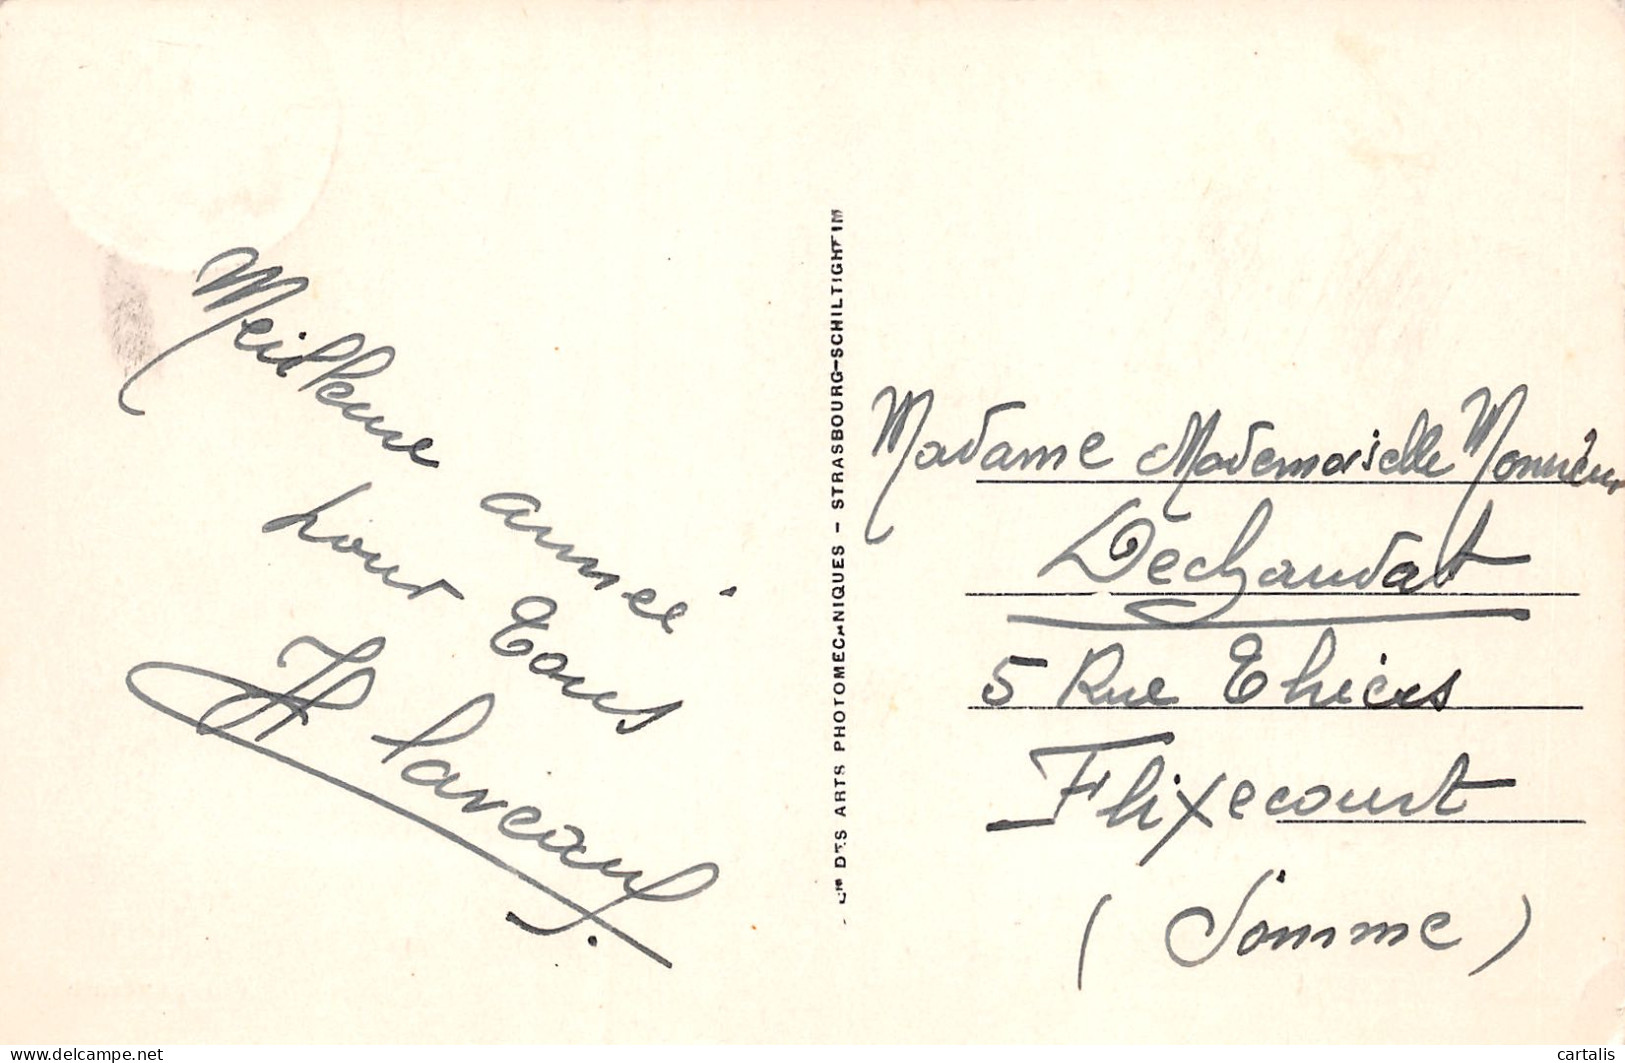 Meilleure année
pour Tous
H Lareaux
Cie DES ARTS PHOTOMECANIQUES - STRASBOURG-SCHILTIGHEIM
Madame Mademoiselle Monsieur
Dechaudat
5 Rue Thiers
Flixecourt
(Somme)
www.delcampe.net
cartalis